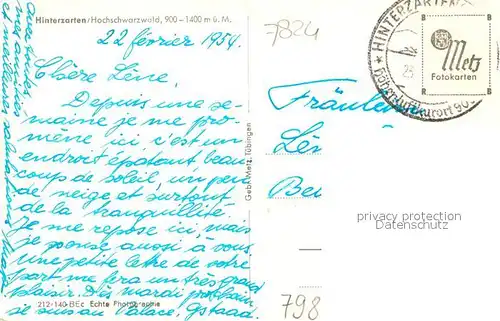 Hinterzarten/Hochschwarzwald, 900-1400 m ü. M.
22 février 1954.
Chère Léne.
Depuis une se-
maine je me pro-
mène ici c'est un
endroit épatant beau-
coup de soleil, un peu
de neige et surtout
de la tranquillité.
Je me repose ici, mais
je pense aussi à vous
une petite lettre de votre
part me fera un très grand
plaisir. Dès mardi prochain
je suis au Palace, Gstaad.
212-140-BEc Echte Photographie
Gebr. Metz, Tübingen
7824
HINTERZARTEN
Höhenluftkurort 900
B R
Metz
Fotokarten
R B
Fräulein
Lé
Be
privacy protection
Datenschutz
798